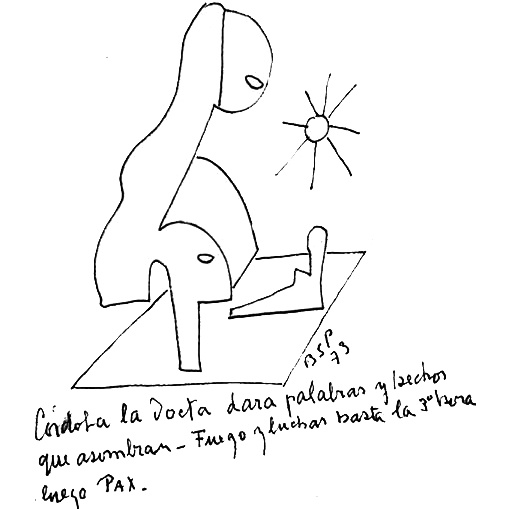 BSP
73
Córdoba la Docta dara palabras y hechos
que asombran - Fuego y luchas hasta la 3º hora
luego PAX.